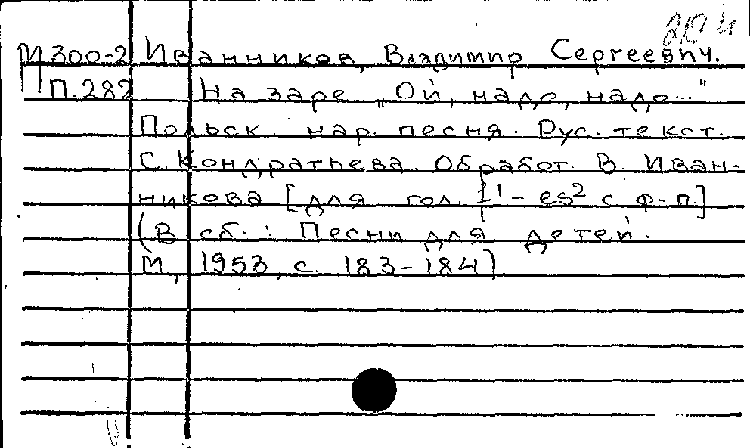 М300-2 Иванников, Владимир Сергеевич.
П.282 На заре „Ой, надо, надо..."
Польск. нар. песня. Рус. текст.
С. Кондратьева. Обработ. В. Иван-
никова [для гол. f¹-es² с ф-п.]
(В сб.: Песни для детей.
М, 1953, с. 183-184)